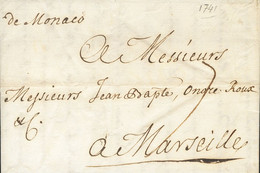 1741
de Monaco
A Messieurs
Messieurs Jean Dapte, Onore Roux
& C.
a Marseille